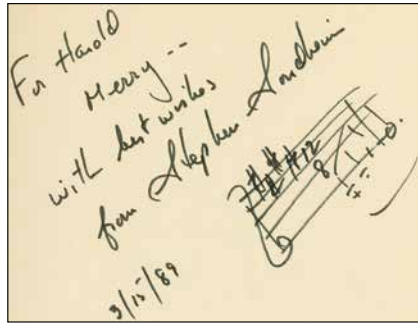 For Harold
Merry --
with best wishes
from Stephen Sondheim
3/15/89